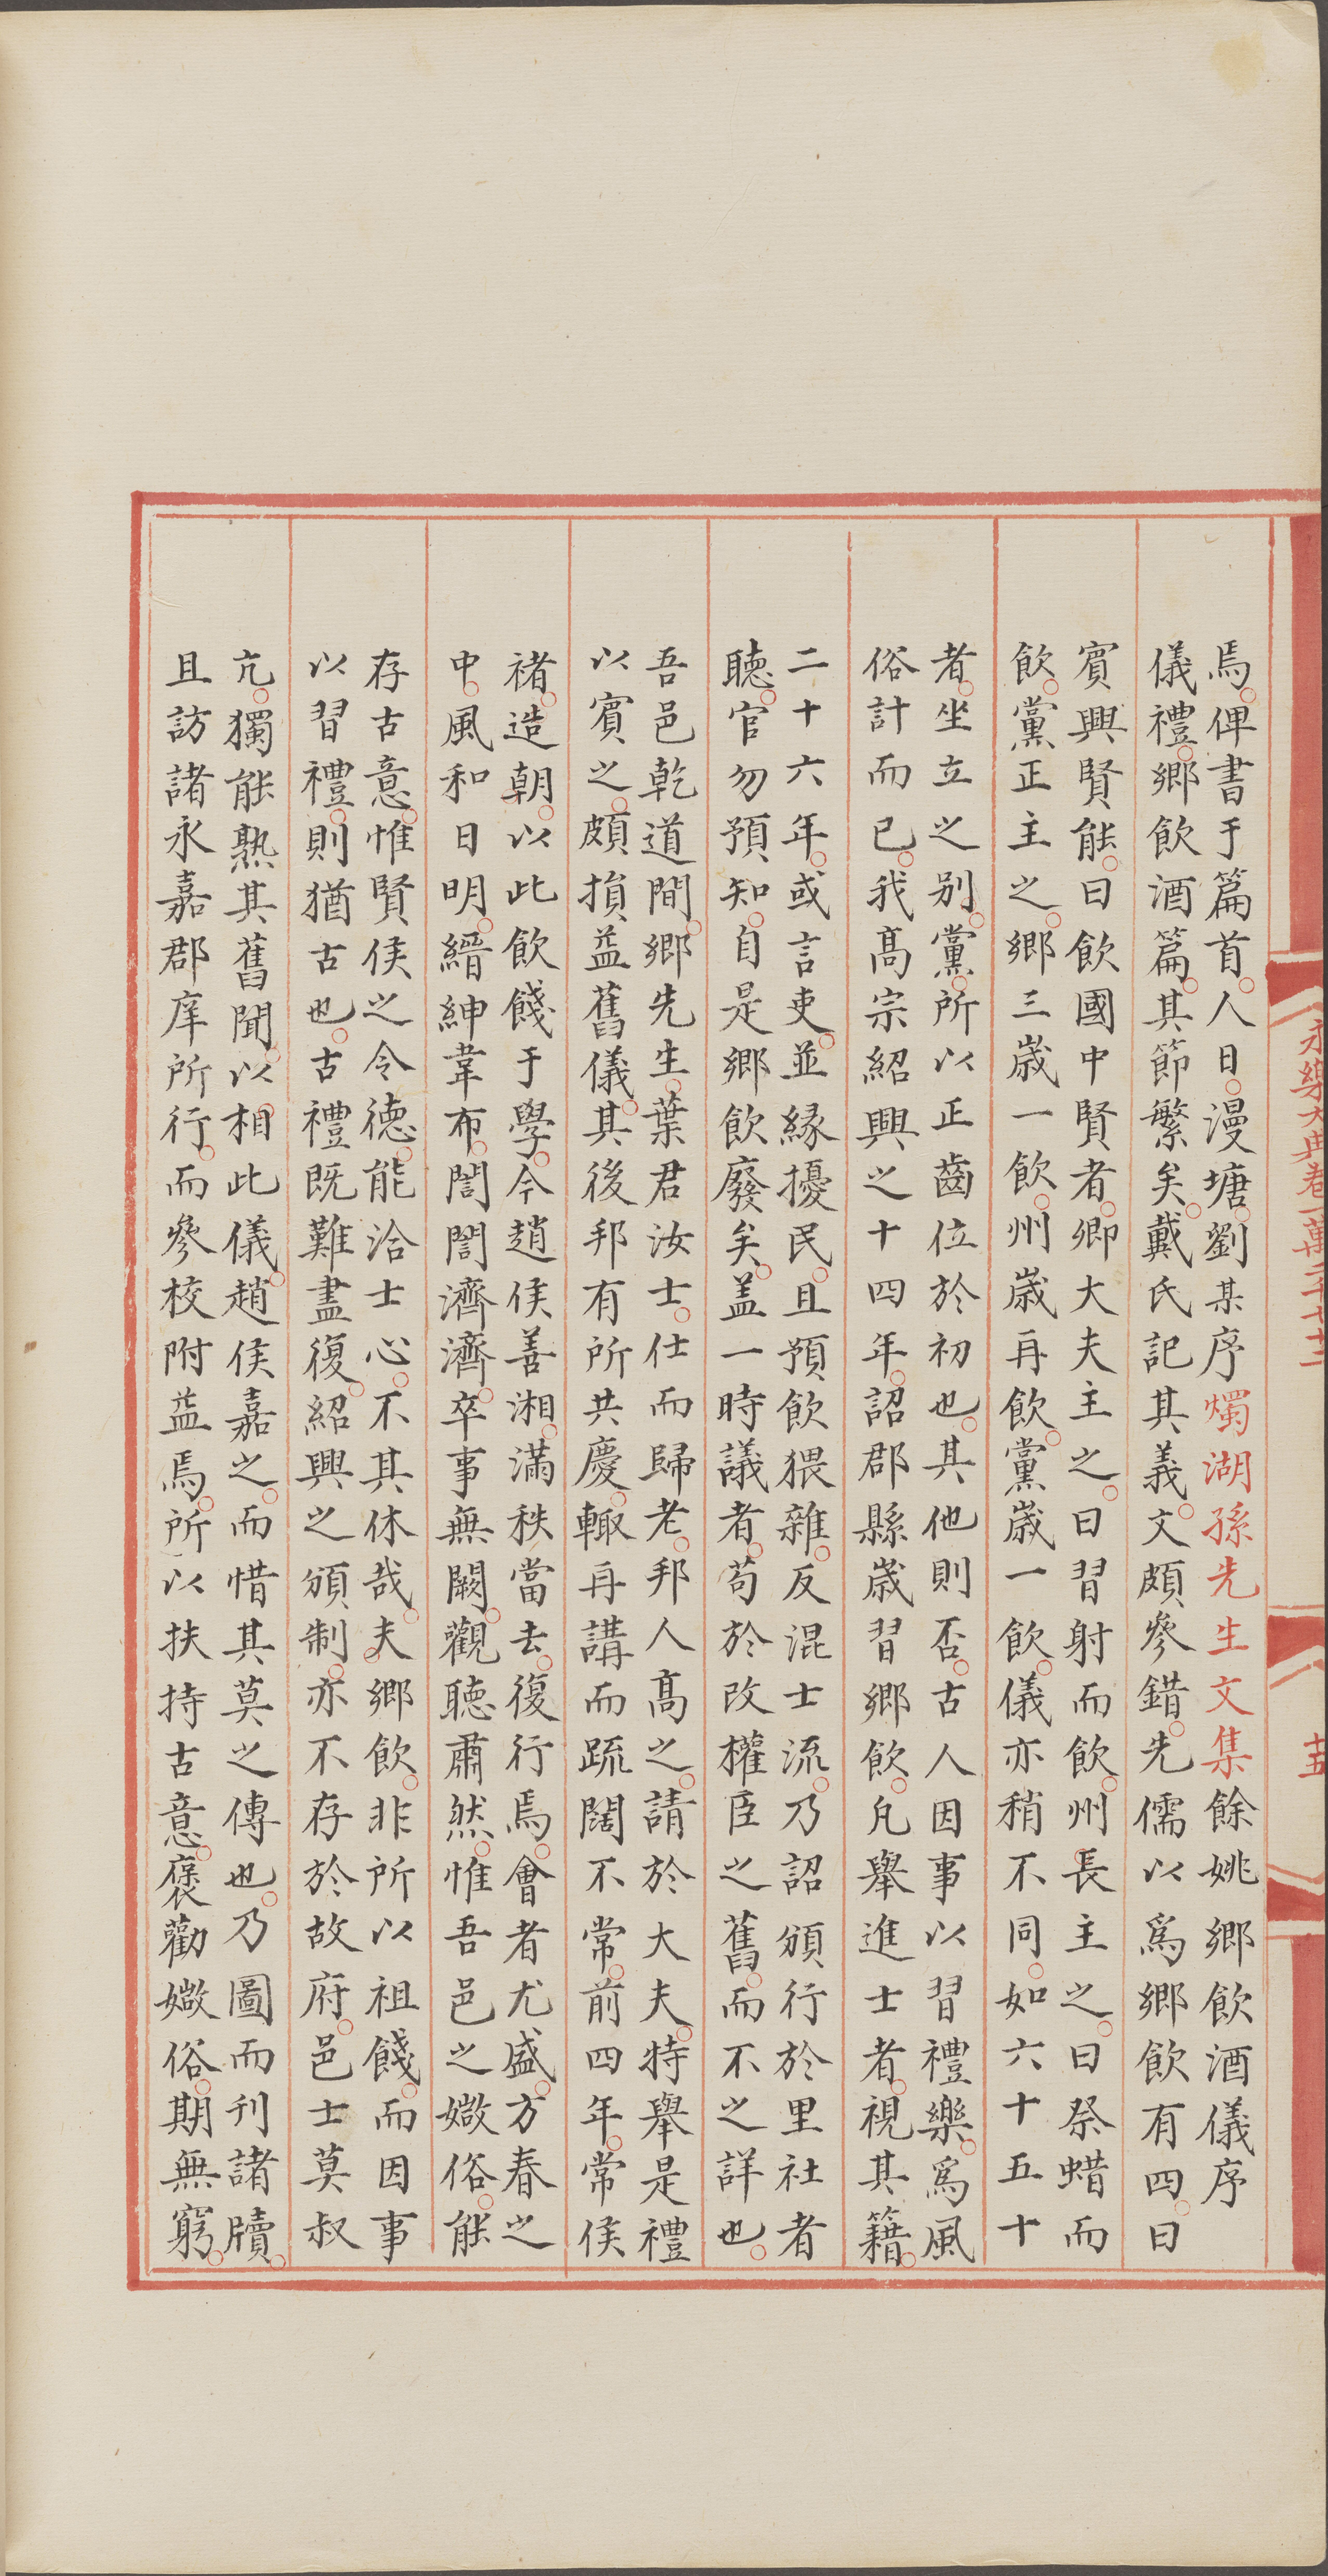 永樂大典卷一萬二千七十二
十五
焉。俾書于篇首。人日。漫塘劉某序燭湖孫先生文集餘姚鄉飲酒儀序
儀禮。鄉飲酒篇。其節繁矣。戴氏記其義。文頗參錯。先儒以爲鄉飲有四。曰
賓興賢能。曰飲國中賢者。卿大夫主之。曰習射而飲。州長主之。曰祭蜡而
飲。黨正主之。鄉三歲一飲。州歲再飲。黨歲一飲。儀亦稍不同。如六十五十
者。坐立之别。黨。所以正齒位於初也。其他則否。古人因事以習禮樂。爲風
俗計而已。我髙宗紹興之十四年。詔郡縣歲習鄉飲。凡舉進士者。視其籍。
二十六年。或言吏。並縁擾民。且預飲猥雜。反混士流。乃詔頒行於里社者
聽。官勿預知。自是鄉飲廢矣。盖一時議者。苟於改權臣之舊。而不之詳也。
吾邑乾道間。鄉先生。葉君汝士。仕而歸老。邦人髙之。請於大夫。特舉是禮
以賓之。頗損益舊儀。其後邦有所共慶。輙再講而疏闊不常。前四年。常侯
禇。造朝。以此飲餞于學。今趙侯善湘。滿秩當去。復行焉。會者尤盛。方春之
中。風和日明。縉紳韋布。誾誾濟濟。卒事無闕。觀聽肅然。惟吾邑之媺俗。能
存古意。惟賢侯之令德。能洽士心。不其休哉。夫鄉飲。非所以祖餞。而因事
以習禮。則猶古也。古禮既難盡復。紹興之頒制。亦不存於故府。邑士莫叔
亢。獨能熟其舊聞。以相此儀。趙侯嘉之。而惜其莫之傳也。乃圖而刊諸牘。
且訪諸永嘉郡庠所行。而參校附益焉。所以扶持古意。褒勸媺俗。期無窮。